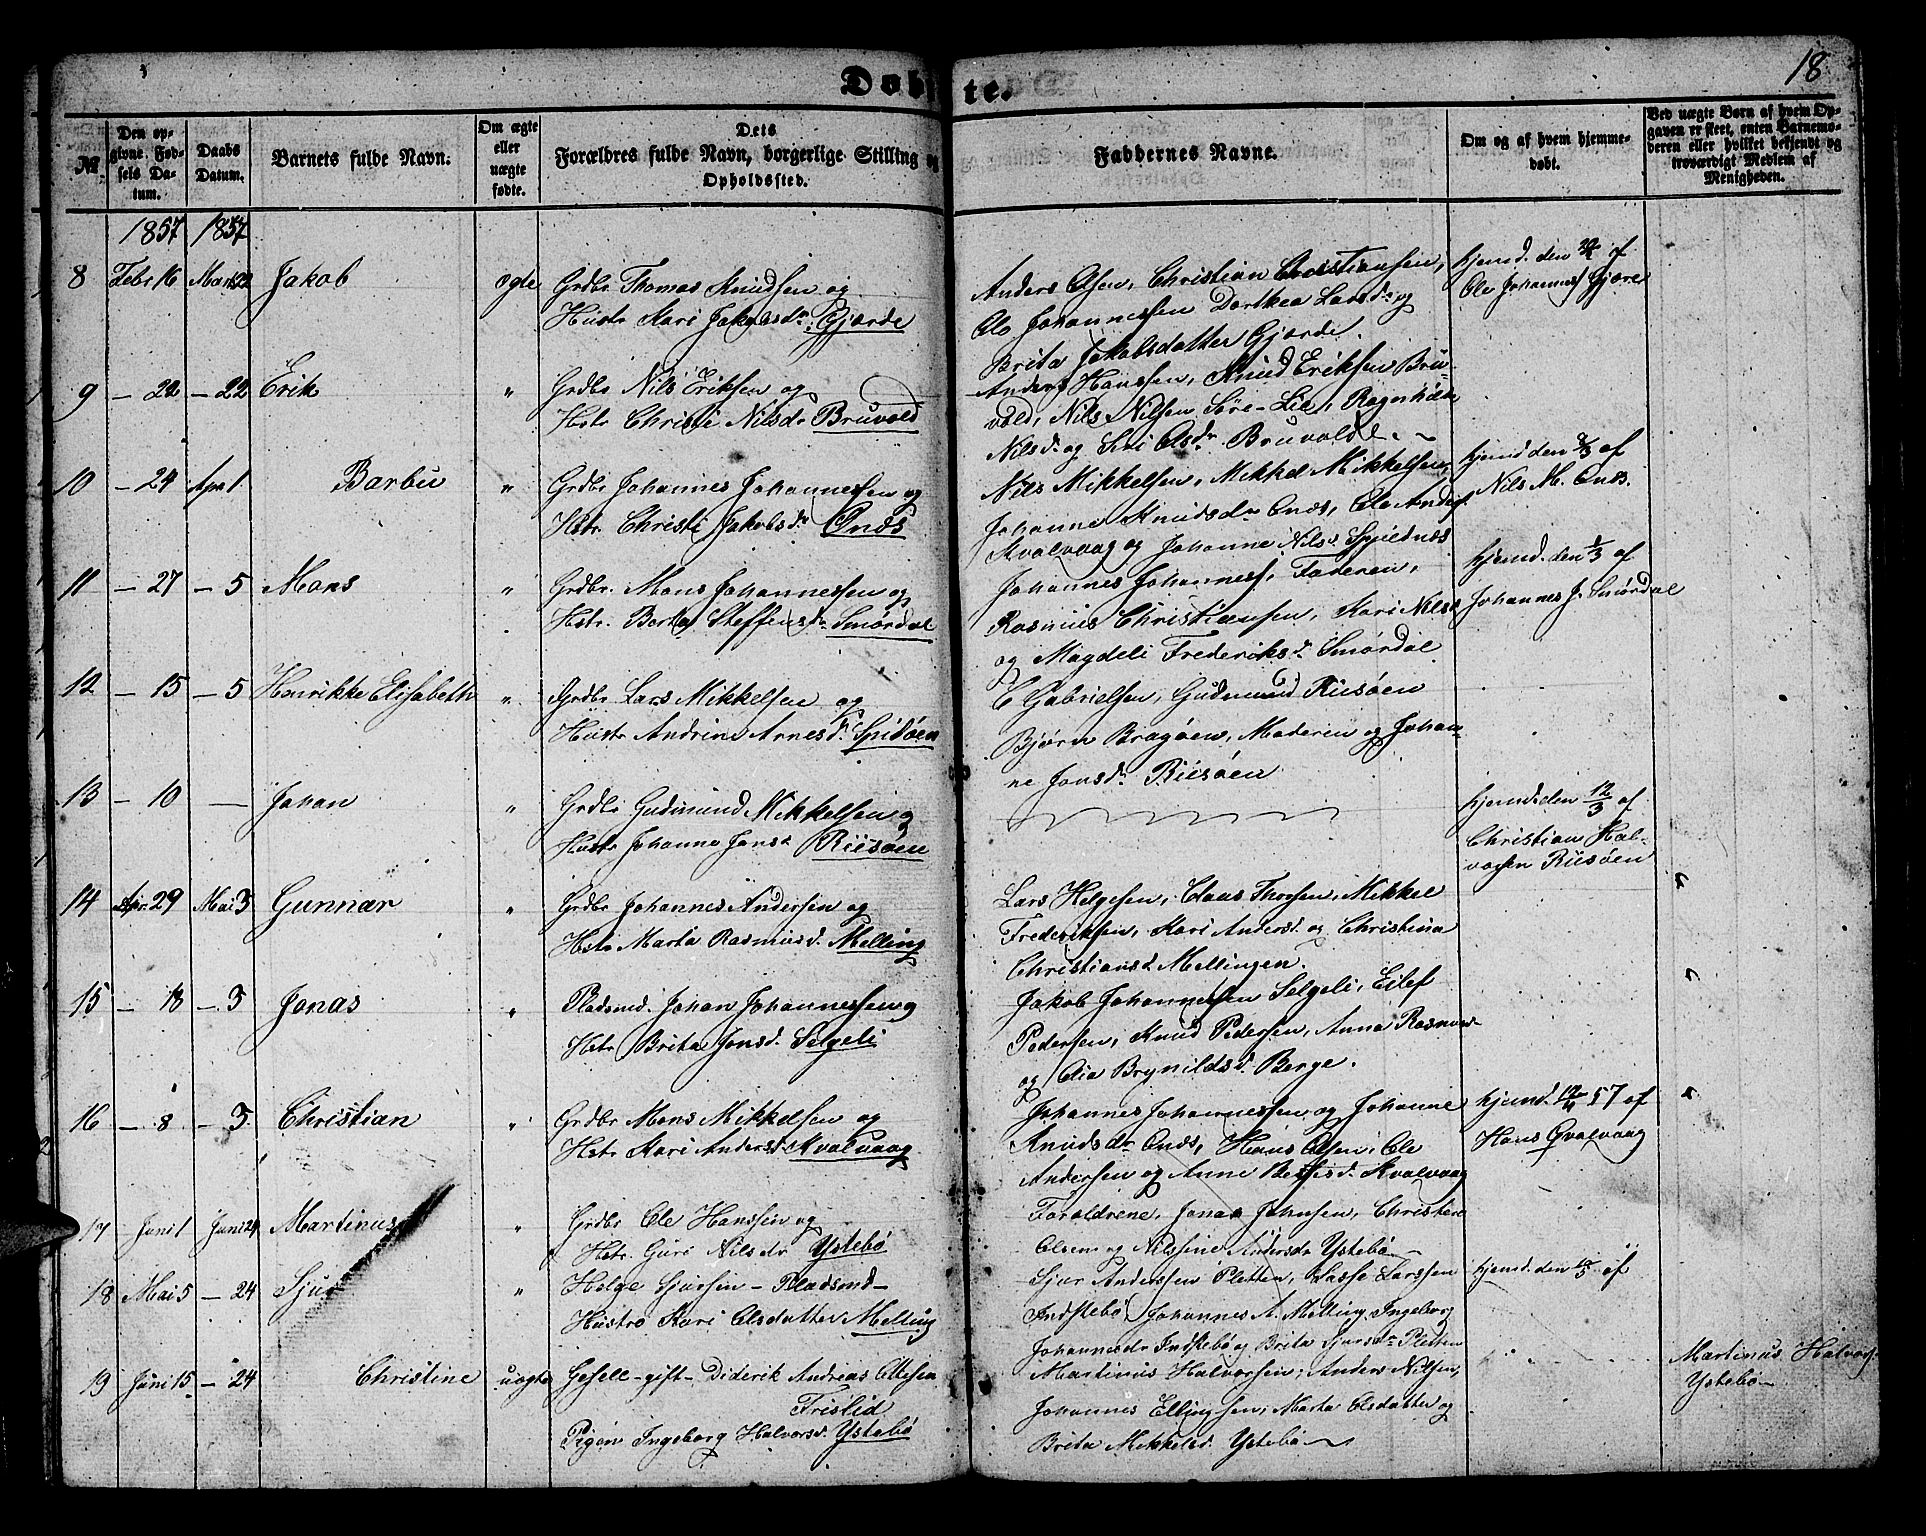 18
Døbte.
No.
Den opgivne Fødsels Datum.
Daabs Datum.
Barnets fulde Navn.
Om ægte eller uægte fødte.
Dets Forældres fulde Navn, borgerlige Stilling og Opholdssted.
Faddernes Navne.
Om og af hvem hjemmedøbt.
Ved uægte Børn af hvem Opgaven er skeet, enten Barnemoderen eller hvilket bekjendt og troværdigt Medlem af Menigheden.
1857 1857
8 Febr 16 Marts 22 Jakob ægte Grdbr Thomas Knudsen og
Hustr Kari Jakobsdr Gjærde
Anders Olsen, Christian Christiansen,
Ole Johannessen Dorthea Larsdr og
Brita Jakobsdatter Gjærde.
hjemd. den 22/2 af
Ole Johannes Gjære
9 – 22 – 22 Erik " Grdbr Nils Eriksen og
Hstr Christi Nilsdr Bruvold
Anders Hanssen, Knud Eriksen Bru-
vold, Nils Nilsen Søre-Lie, Ragnhilda
Nilsd. og Siri Olsdr Bruvold.
10 – 24 Apr 1. Barbu " Grdbr Johannes Johannessen og
Hstr. Christi Jakobsdr Onæs
Nils Mikkelsen, Mikkel Mikkelsen,
Johanne Knudsdr Onæs, Ole Anders.
Kvalvaag og Johanne Nilsd. Spjeldnæs
hjemd den 8/3 af
Nils M. Onæs.
11 – 27 – 5 Mons " Grdbr. Mons Johannessen og
Hstr. Berta Steffensdr Smørdal
Johannes Johanness. Faderen,
Rasmus Christiansen, Kari Nilsd
og Magdeli Frederiksdr Smørdal
hjemd. den 1/3 af
Johannes J. Smørdal
12 – 15 – 5 Henrikke Elisabeth " Grdbr Lars Mikkelsen og
Hustr Andrine Arnesdr Spidsøen
C Gabrielsen, Gudmund Riisøen
Bjørn Bragøen, Moderen og Johan-
ne Jonsdr Riisøen
13 – 10 — Johan " Grdbr Gudmund Mikkelsen og
Hustr Johanne Jonsd Riisøen
hjemd. den 12/3 af
Christian Hal-
vorsen Riisøen
14 Apr. 29 Mai 3 Gunnar " Grdbr Johannes Andersen og
Hstr Marta Rasmusd. Melling
Lars Helgesen, Claas Thorsen, Mikkel
Frederiksen, Kari Andersd. og Christina
Christiansd Mellingen.
15 – 18 – 3 Jonas " Pladsmd. Johan Johannessen og
Hstr Brita Jonsd. Selgeli
Jakob Johannessen Selgeli, Eilef
Pedersen, Knud Pedersen, Anna Rasmus-
og Olia Brynildsd. Berge.
16 – 8 – 3. Christian " Grdbr Mons Mikkelsen og
Hstr Kari Andersd Kvalvaag
Johannes Johannessen og Johanne
Knudsdr Onæs, Hans Olsen, Ole
Andersen og Anne Bertesd. Kvalvaag
hjemd. 12/4 57 af
Hans Qvalvaag
17 Juni 1 Juni 24 Martinus " Grdbr Ole Hanssen og
Hstr. Guri Nilsdr Ystebø
Forældrene, Jonas Johnsen, Christen
Olsen og Nilssine Andersdr Ystebø
18 Mai 5 – 24 Sjur " Helge Sjursen – Pladsmd –
Hustro Kari Olsdatter Melling
Sjur Anderssen Pletten, Lasse Larssen
Indstebø Johannes A. Melling, Ingeborg
Johannesdr Indstebø og Brita Sjursdr Pletten
hjemd. den 10/5 af
19 Juni 15 – 24 Christine uægte Gesell – gift – Diderik Andreas Ottesen
Fristid
Pigen Ingeborg Halvorsd. Ystebø
Martinus Halvorsen, Anders Nilsen,
Johannes Ellingsen, Marta Olsdatter og
Brita Mikkelsd. Ystebø
Martinus Halvors.
Ystebø